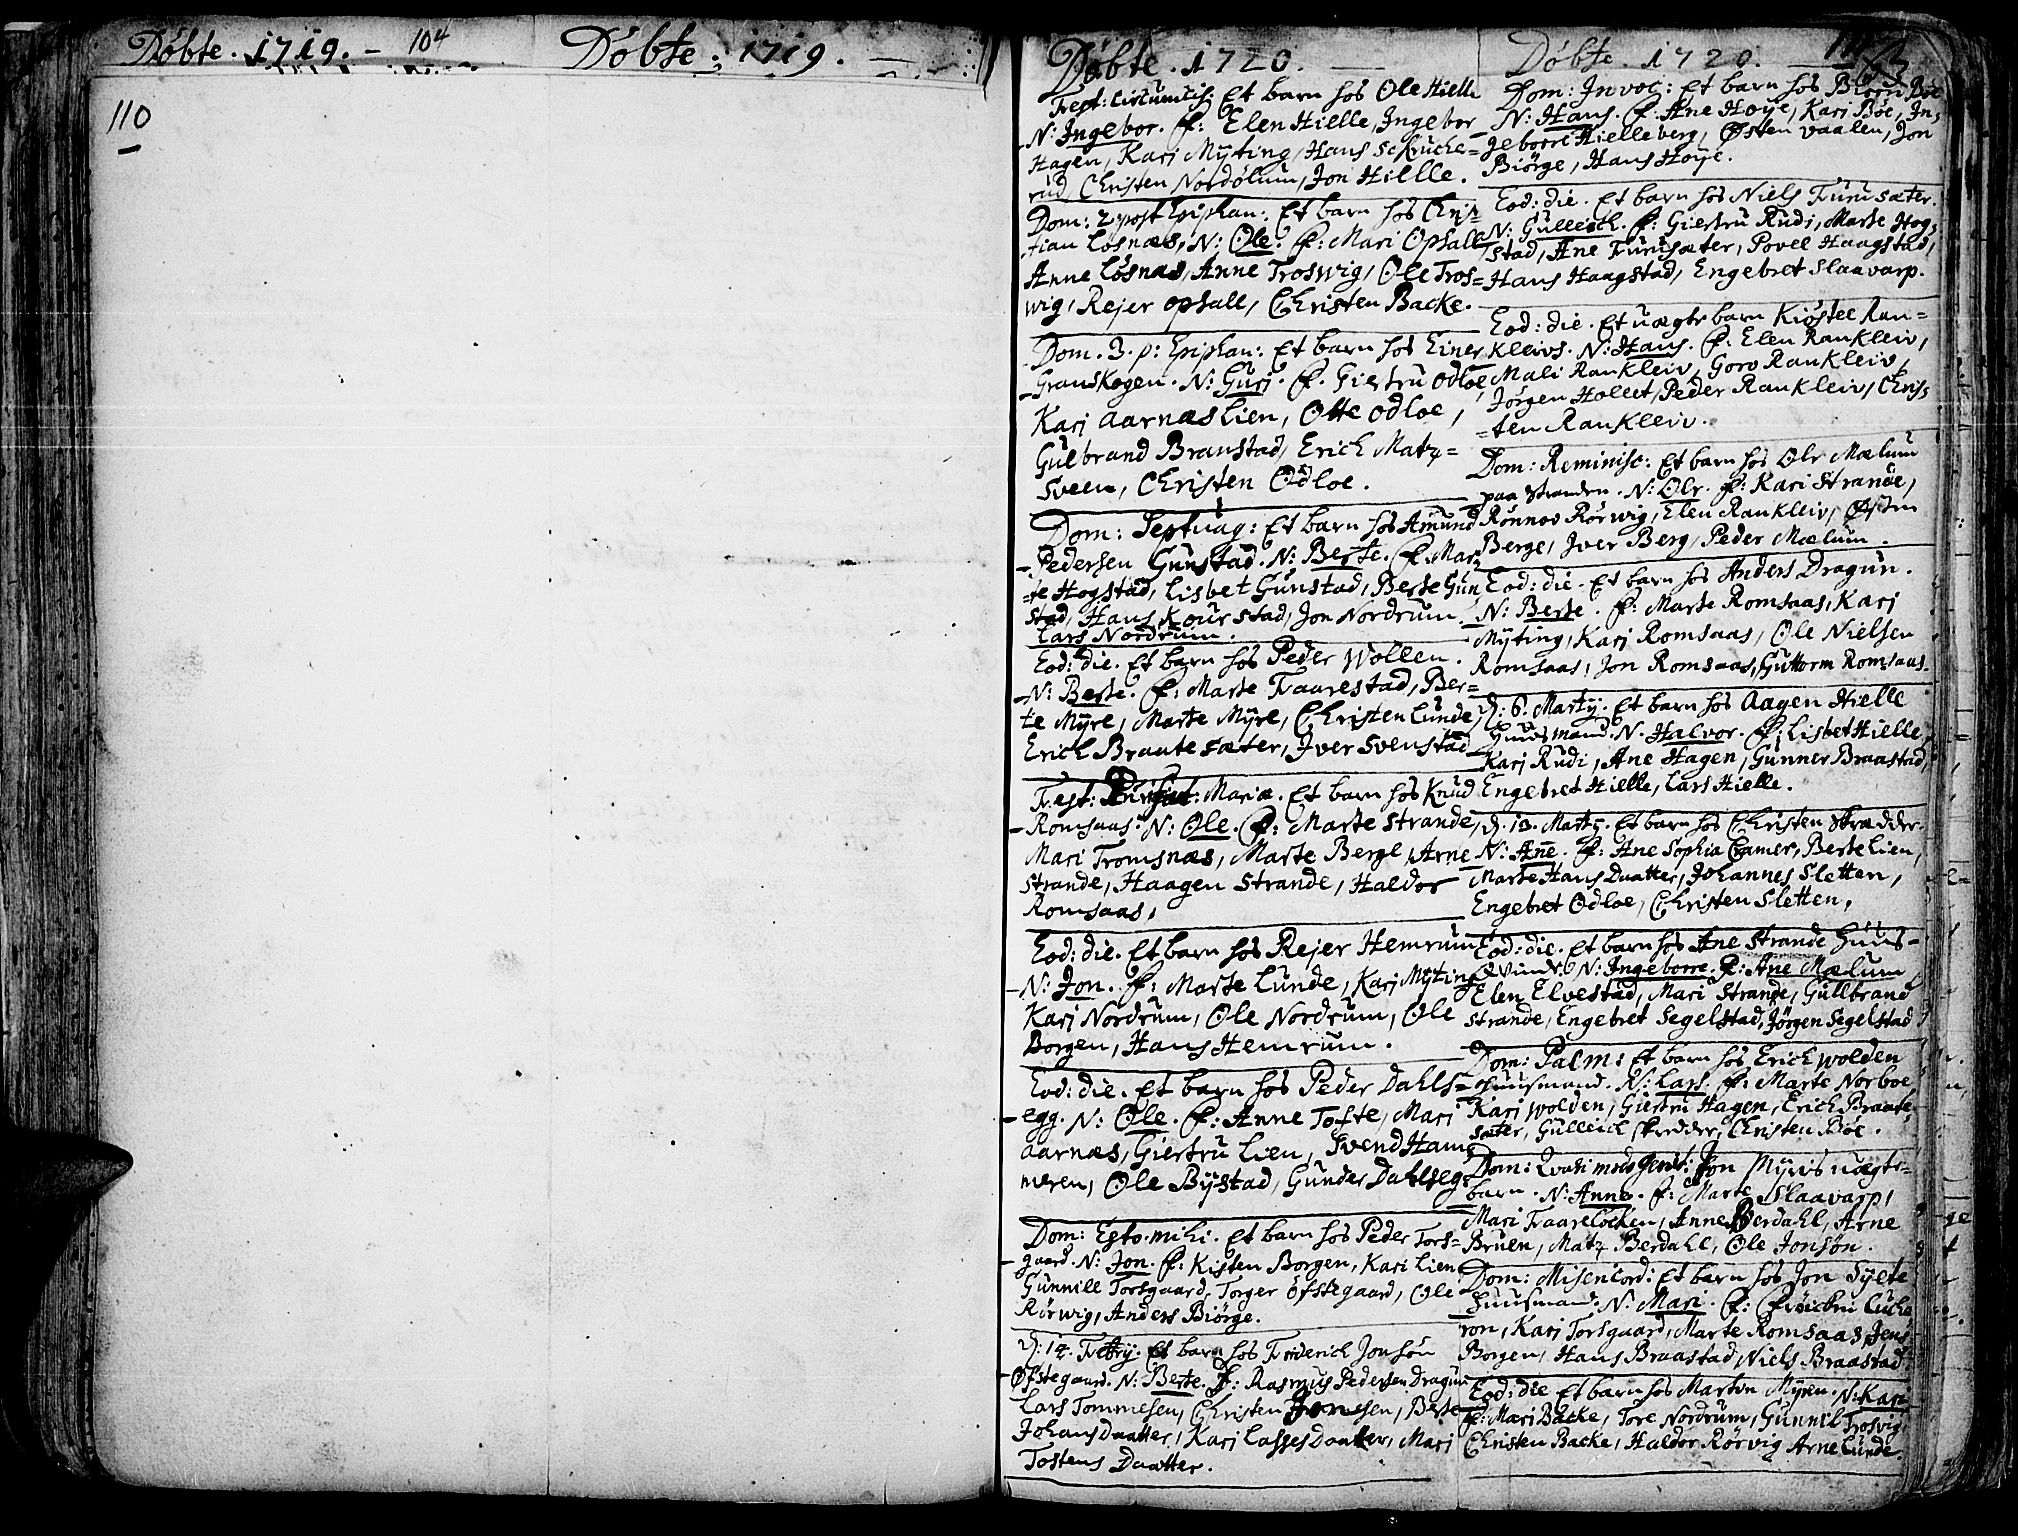 Döbte. 1719. - 104
Döbte: 1719. -
110
Döbte. 1720. -
Fest: Circumcis: Et barn hos Ole Hielle
N: Ingebor. f: Elen Hielle, Ingebor
Hagen, Kari Mÿting, Hans Schrucke=
rud, Christen Nordölum, Jon Hielle.
Dom: 2 post Epiphan: Et barn hos Chri-
stian Lösnæs, N: Ole. f: Mari Ophall
Anne Lösnæs, Anne Troswig, Ole Tros=
wig, Rejer ophall, Christen Backe.
Dom. 3. p: Epiphan: Et barn hos Einer
Granskogen. N: Gurj. f. Giertru Odloe,
Karj Aarnæs Lien, Otte Odloe,
Gulbrand Branstad, Erich Matz=
Sveen, Christen Odloe.
Dom: Septuag: Et barn hos Amund
Pedersen Gunstad. N: Berte. f: Mar=
te Hogstad, Lisbet Gunstad, Berte Gun
stad, Hans Kourstad, Jon Nordrum
Lars Nordrum.
Eod: die. Et barn hos Peder Wollen.
N: Berte. f: Marte Traarestad, Ber=
te Mÿre, Marte Mÿre, Christen Lunde,
Erich Braatesæter, Jver Svenstad
Fest: Purificat: Mariæ. Et barn hos Knud
Romsaas. N: Ole. f: Marte Strande,
Mari Tromsnæs, Marte Berge, Arne
Strande, Haagen Strande, Haldor
Romsaas,
Eod: die. Et barn hos Rejer Hemrum
N: Jon. f: Marte Lunde, Karj Mÿting
Karj Nordrum, Ole Nordrum, Ole
Borgen, Hans Hemrum.
Eod: die. Et barn hos Peder Dahls=
egg. N: Ole. f: Anne Tofte, Mari
Aarnæs, Giertru Lien, Svend Ham=
meren, Ole Bÿstad, Gunder Dahlseg
Dom: Esto mihi. Et barn hos Peder Tors=
gaard. N: Jon. f: Kisten Borgen, Kari Lien
Gunnill Torsgaard, Torger Öfstegaard, Ole
Rörwig, Anders Biörge.
D: 14. Febry. Et barn hos Friderich Jonsön
Öfstegaard. N: Berte. f: Rasmus Pedersen Dragun
Lars Tommesen, Christen Jonesen, Berte
Johansdaatter, Karj Lassesdaatter, Mari
Tostens Daatter.
Döbte. 1720. -
Dom: Invoc: Et barn hos Biörn Böe
N: Hans. f: Ane Hoÿe, Kari Böe, In=
geborre Hielleberg, Östen Vaalen, Jon
Biörge, Hans Hoÿe.
Eod: die. Et barn hos Niels Furusæter.
N: Gulleich. f: Giertru Rudi, Marte Hog=
stad, Ane Furusæter, Povel Haagstad,
Hans Haagstad, Engebret Slaavarp.
Eod: die. Et uægte barn Kiöstel Ran=
kleivs. N: Hans. f: Elen Rankleiv,
Mali Rankleiv, Goro Rankleiv,
Jörgen Hollet, Peder Rankleiv, Chris=
=ten Rankleiv.
Dom: Reminisc: Et barn hos Ole Mælum
paa Stranden. N: Ole. f: Kari Strande,
Rönnov Rörwig, Elen Rankleiv, Östen
Berge, Jver Berg, Peder Mælum.
Eod: die. Et barn hos Anders Dragun.
N: Berte. f: Marte Romsaas, Karj
Mÿting, Karj Romsaas, Ole Nielsen
Romsaas, Jon Romsaas, Guttorm Romsaas.
D: 6. Martÿ. Et barn hos Aagen Hielle
Huusmand. N. Halvor. f: Lisbet Hielle
Karj Rudi, Ane Hagen, Gunner Braastad,
Engebret Hielle, Lars Hielle.
D. 10. Martÿ. Et barn hos Christen Skrædder.
N: Añe. f: Ane Sophia Cramer, Berte Lien,
Marte Hans Daatter, Johannes Sletten,
Engebret Odloe, Christen Sletten,
Eod: die. Et barn hos Ane Strande Huus-
qvinde. N: Ingeborre. f: Ane Mælum
Elen Elvestad, Mari Strande, Gullbrand
Strande, Engebret Segelstad, Jörgen Segelstad
Dom: Palm: Et barn hos Erich Wolden
Huusmand. N: Lars. f: Marte Norboe
Kari Wolden, Giertru Hagen, Erich Braate=
sæter, Gulleich Skredder, Christen Böe.
Dom: Qvasimodogenit: Jon Mÿres uægte=
barn. N: Anne. f: Marte Slaavarp,
Mari Traarelöcken, Anne Berdahl, Arne
Bruen, Matz Berdahl, Ole Jonsön.
Dom: Misericord: Et barn hos Jon Sÿlte
Huusmand. N: Mari. f: Fröicken Lucke
ron, Kari Torsgaard, Marte Romsaas, Jens
Borgen, Hans Braastad, Niels Braastad
Eod: die Et barn hos Marten Mÿren. N: Kari
f: Mari Backe, Tore Nordrum, Gunnil Trosvig,
Christen Backe, Haldor Rörvig Arne Lunde.